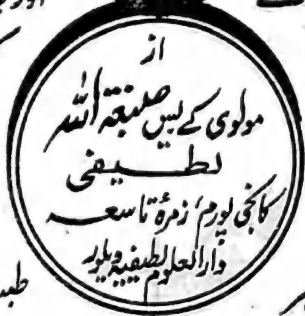 از
مولوی کے یس صبغۃ اللہ
لطیفی
کانجی پورم، زمرۂ تاسعہ
دارالعلوم لطیفیہ ویلور